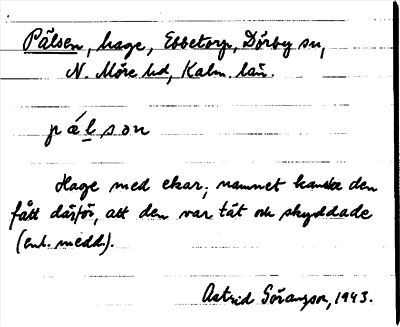 Pälsen, hage, Ebbetorp, Dörby sn,
N. Möre hd, Kalm. län.
pǽlson
Hage med ekar; namnet kanske den
fått därför, att den var tät och skyddade
(enl. medd.).
Astrid Göransson, 1943.